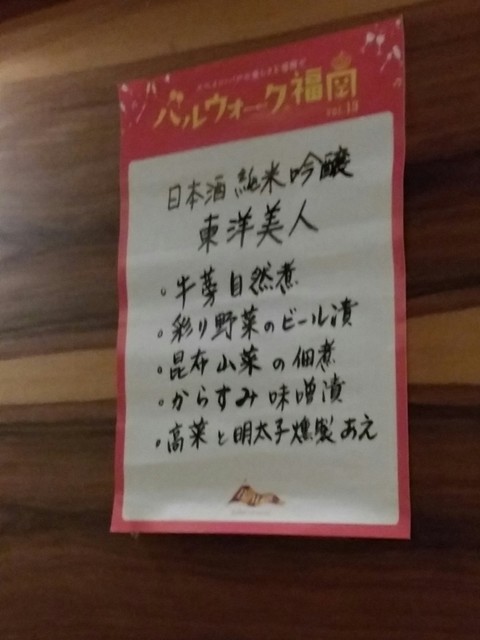 バルウォーク福岡
日本酒 純米吟醸
東洋美人
・牛蒡自然煮
・彩り野菜のビール漬
・昆布山菜の佃煮
・からすみ味噌漬
・高菜と明太子燻製あえ